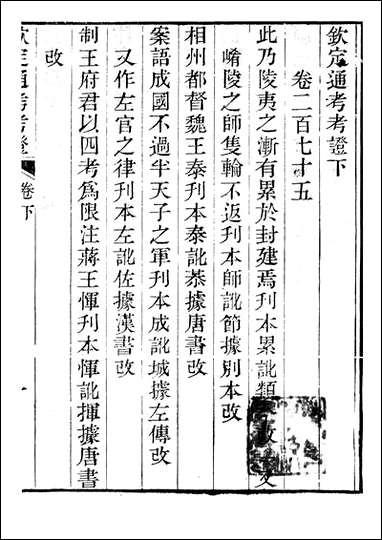 欽定通考考證下
卷二百七十五
此乃陵夷之漸有累於封建焉刊本累訛類
崤陵之師隻輪不返刊本師訛節據別本改
相州都督魏王泰刊本泰訛恭據唐書改
案語成國不過半天子之軍刊本成訛城據左傳改
又作左官之律刊本左訛佐據漢書改
制王府君以四考為限注蔣王惲刊本惲訛揮據唐書
改
欽定通考考證
卷下
一